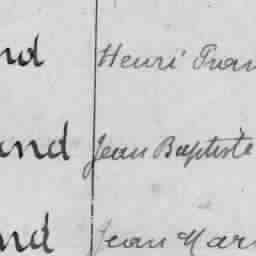 nd Henri Fran
and Jean Baptiste
nd Jean Mari